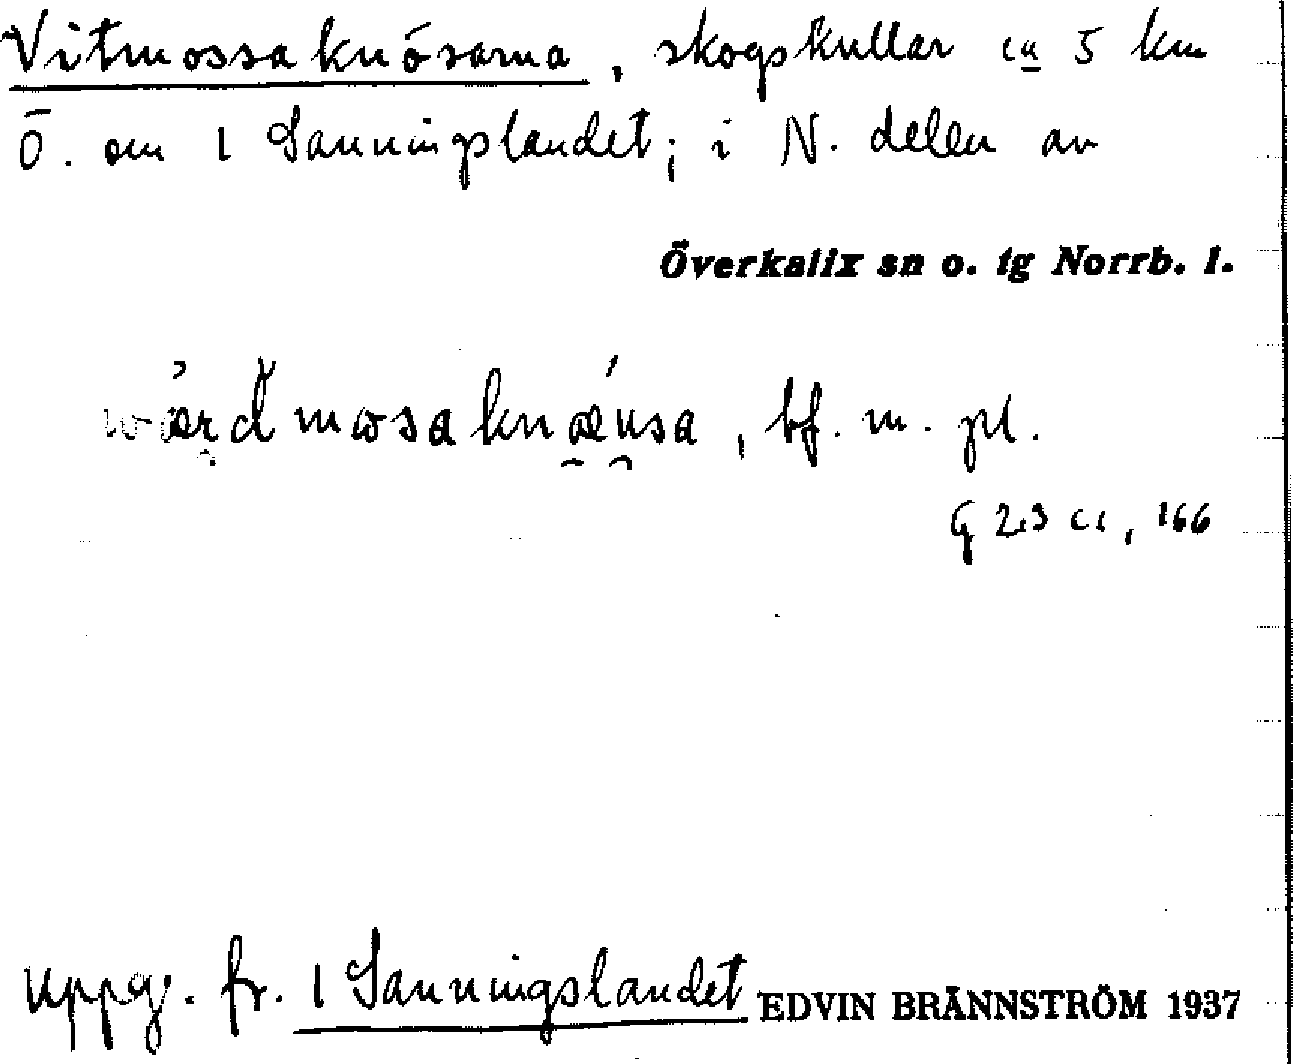 Vitmossaknösarna, skogskullar ca 5 km
Ö. om 1 Sanningslandet; i N. delen av
Överkalix sn o. tg Norrb. l.
wærdmosaknænsa, bf. m. pl.
G 23 cc, 166
uppg. fr. 1 Sanningslandet EDVIN BRÄNNSTRÖM 1937